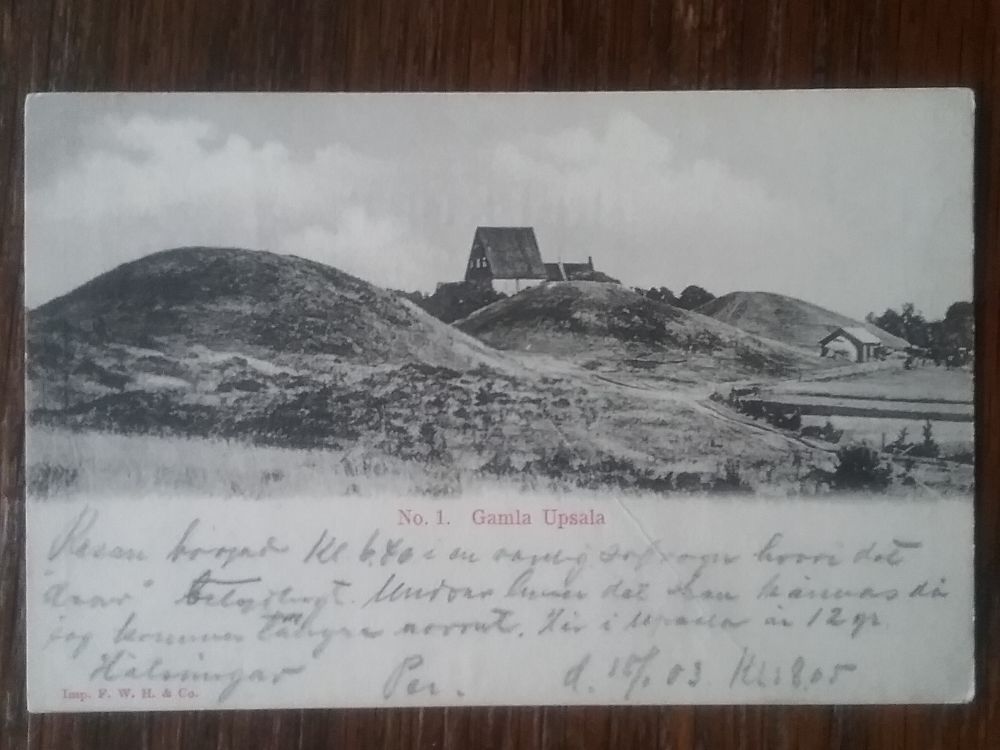 No. 1. Gamla Upsala
Resan börjad Kl 6.40 i en vagn hvori det
"drar" betydligt. Undrar huru det kan kännas då
jag kommer längre norrut. Här i Upsala är 12 gr.
Hälsningar Per. d. 15/1 03 Kl. 8.05
Imp. F. W. H. & Co.